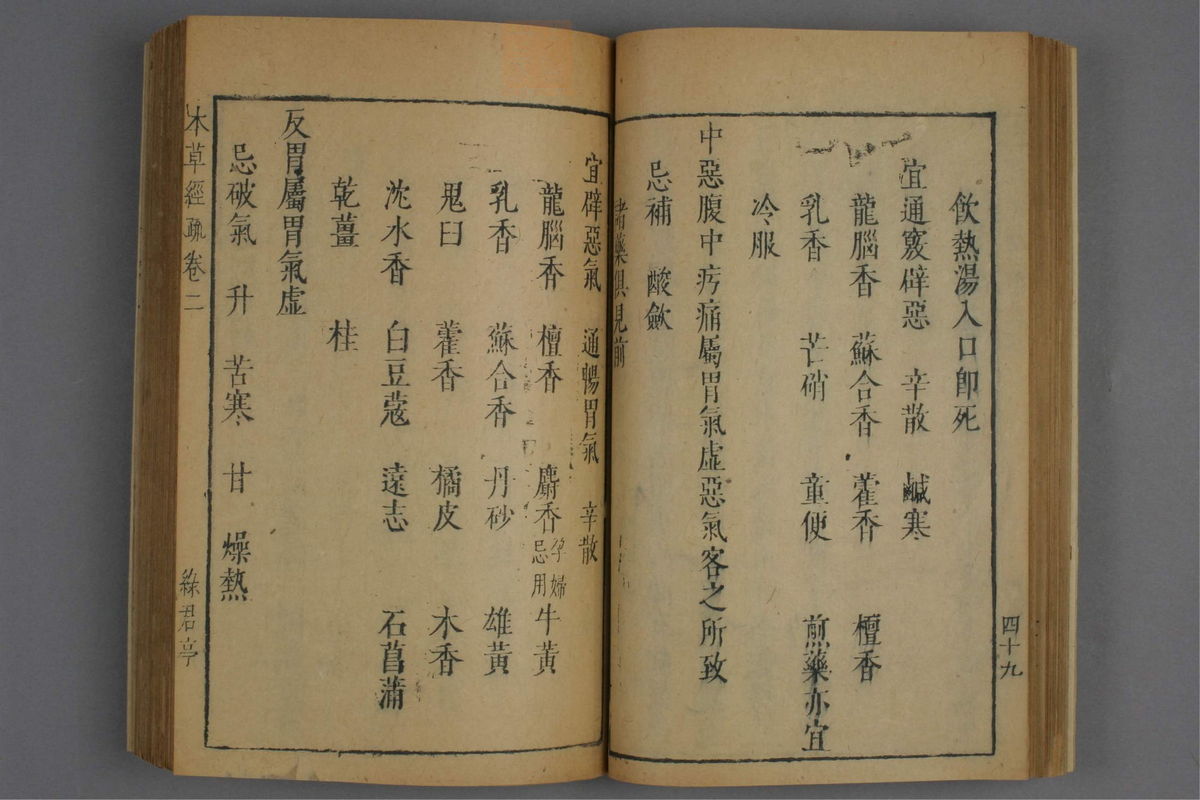 飲熱湯入口卽死
宜通竅辟惡　辛散　鹹寒
龍腦香　蘇合香　藿香　檀香
乳香　芒硝　童便　煎藥亦宜
冷服
中惡腹中㽲痛屬胃氣虛惡氣客之所致
忌補　酸斂
諸藥俱見前
四十九
宜辟惡氣　通暢胃氣　辛散
龍腦香　檀香　麝香孕婦忌用　牛黃
乳香　蘇合香　丹砂　雄黃
鬼臼　藿香　橘皮　木香
沈水香　白豆蔻　遠志　石菖蒲
乾薑　桂
反胃屬胃氣虛
忌破氣　升　苦寒　甘　燥熱
本草經疏卷二
綠君亭